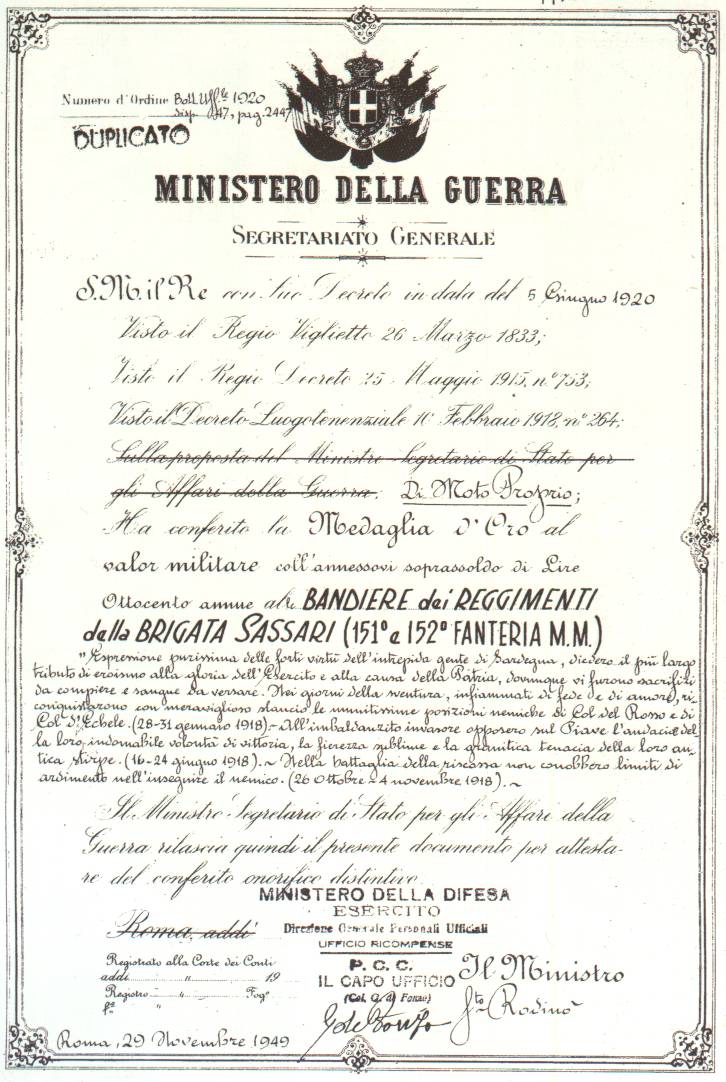 Numero d'Ordine Boll. Uff.le 1920
disp. 47, pag. 2447
DUPLICATO
MINISTERO DELLA GUERRA
SEGRETARIATO GENERALE
S.M. il Re con Suo Decreto in data del 5 Giugno 1920
Visto il Regio Viglietto 26 Marzo 1833;
Visto il Regio Decreto 25 Maggio 1915, n° 753;
Visto il Decreto Luogotenenziale 10 Febbraio 1918, n° 264;
Sulla proposta del Ministro Segretario di Stato per
gli Affari della Guerra; Di Moto Proprio;
Ha conferito la Medaglia d'Oro al
valor militare coll'annessovi soprassoldo di Lire
Ottocento annue alle BANDIERE dei REGGIMENTI
della BRIGATA SASSARI (151° e 152° FANTERIA M.M.)
"Espressione purissima delle forti virtù dell'intrepida gente di Sardegna, diedero il più largo
tributo di eroismo alla gloria dell'Esercito e alla causa della Patria, dovunque vi furono sacrifizi
da compiere e sangue da versare. Nei giorni della sventura, infiammati di fede e di amore, ri-
conquistarono con meraviglioso slancio le munitissime posizioni nemiche di Col del Rosso e di
Col d'Echele. (28-31 gennaio 1918).- All'imbaldanzito invasore opposero sul Piave l'audacia del-
la loro indomabile volontà di vittoria, la fierezza sublime e la granitica tenacia della loro an-
tica stirpe. (16-24 giugno 1918).~ Nella battaglia della riscossa non conobbero limiti di
ardimento nell'inseguire il nemico. (26 Ottobre - 4 novembre 1918).~
Il Ministro Segretario di Stato per gli Affari della
Guerra rilascia quindi il presente documento per attesta-
re del conferito onorifico distintivo.
MINISTERO DELLA DIFESA
ESERCITO
Roma, addì
Direzione Generale Personali Ufficiali
UFFICIO RICOMPENSE
Registrato alla Corte dei Conti
addì " " 19
Registro " Fog°
P. C. C.
IL CAPO UFFICIO
(Col. G. di Fonzo)
Il Ministro
fto Rodinò
Roma, 29 Novembre 1949